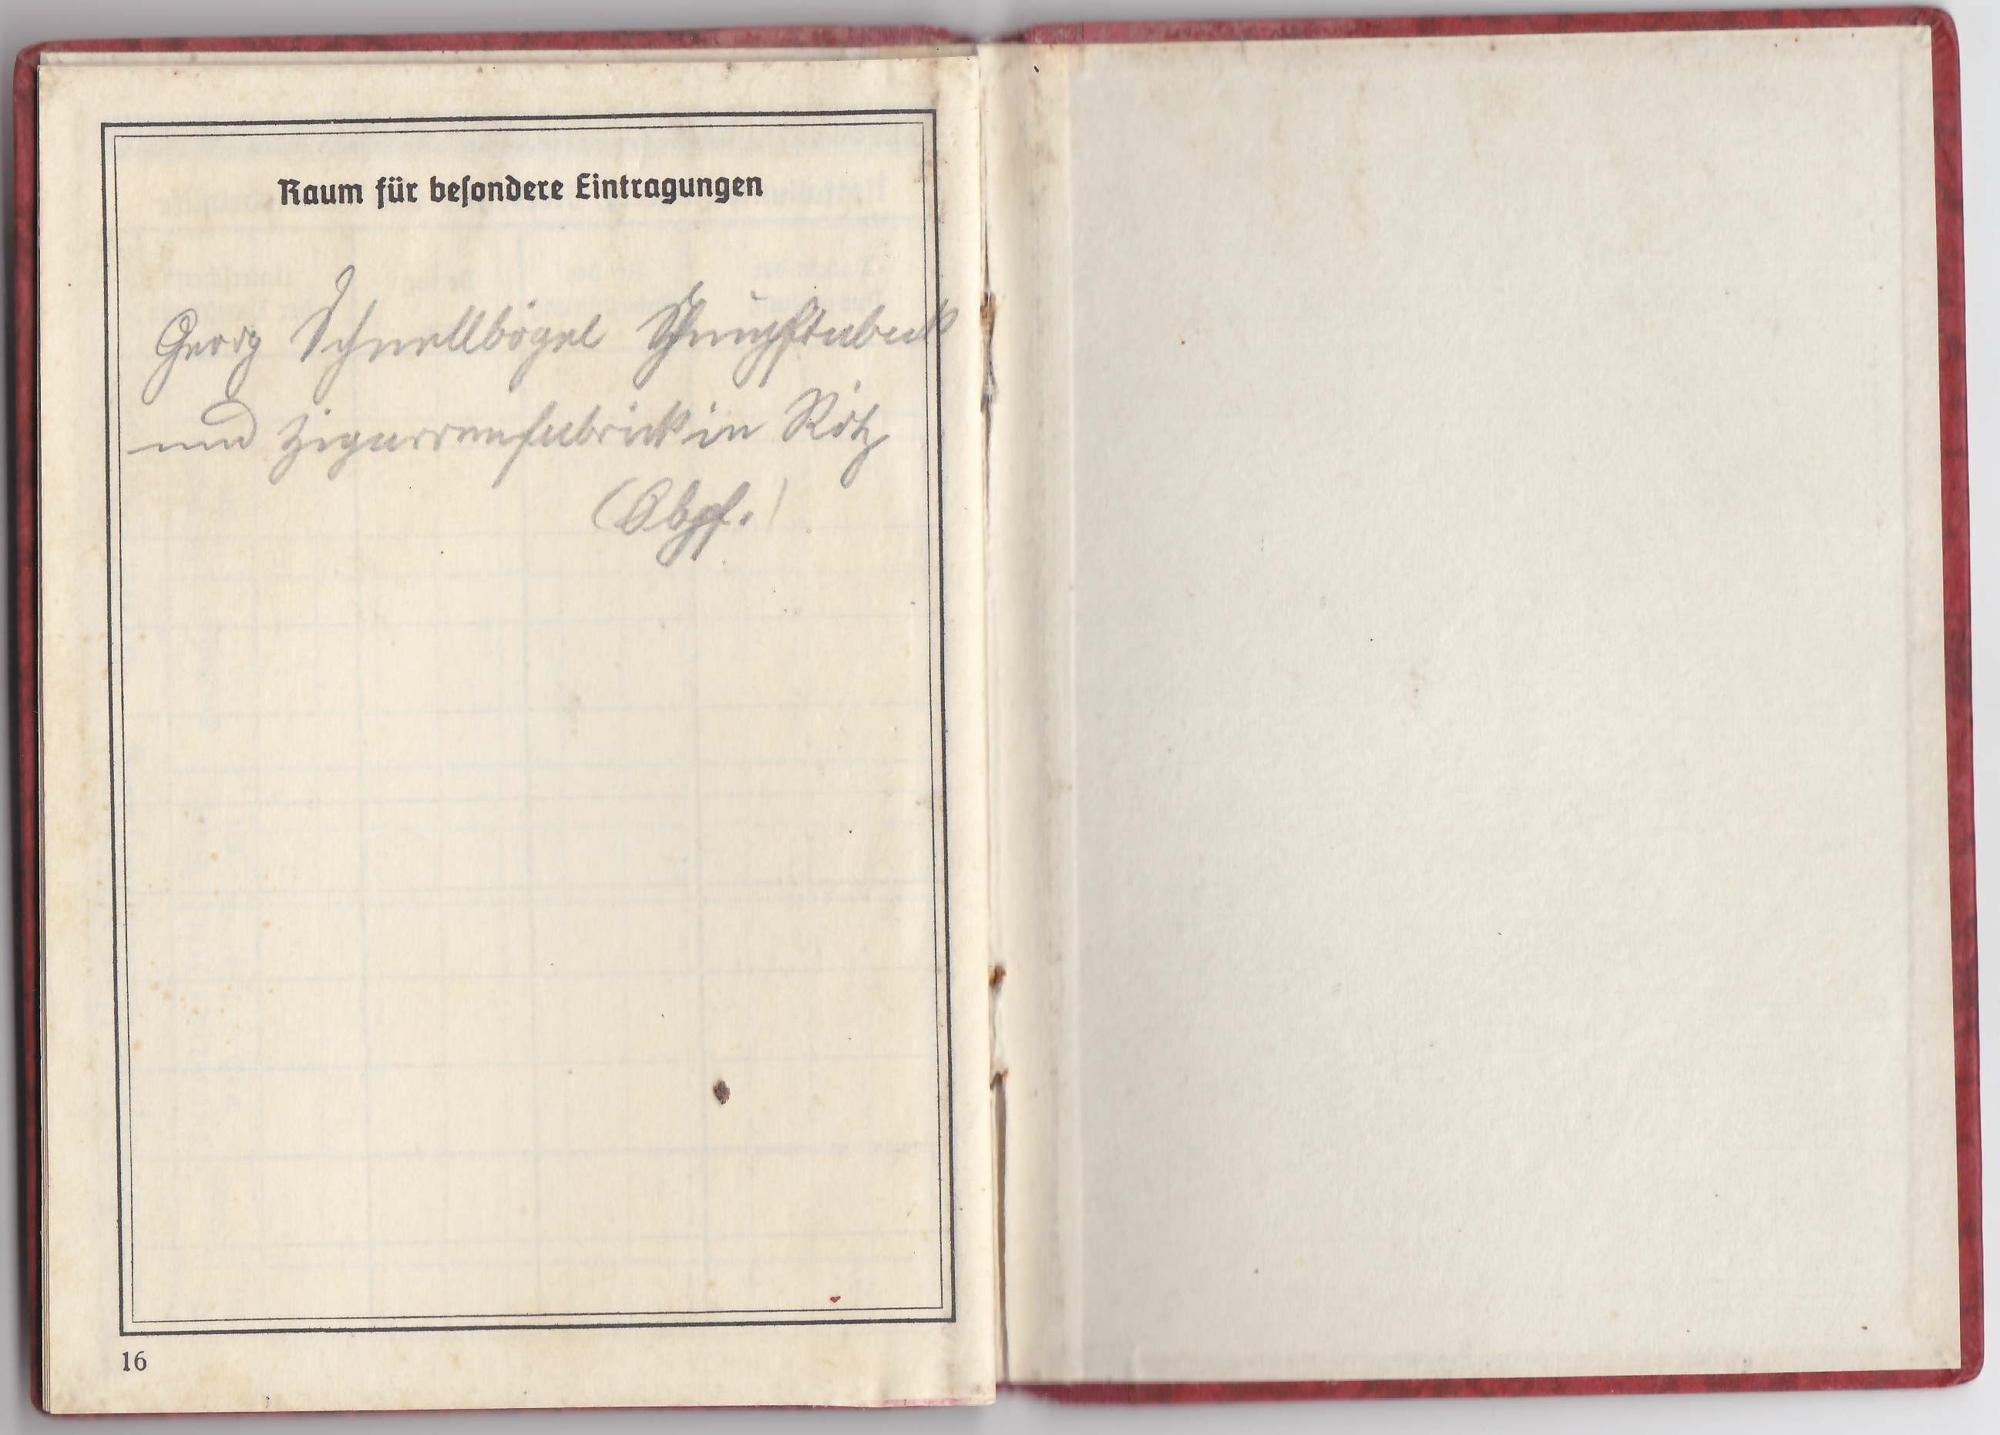 Raum für besondere Eintragungen
Georg Schnellbögel Schnupftaback
und Zigarrenfabrick in Rötz
(Obpf.)
16